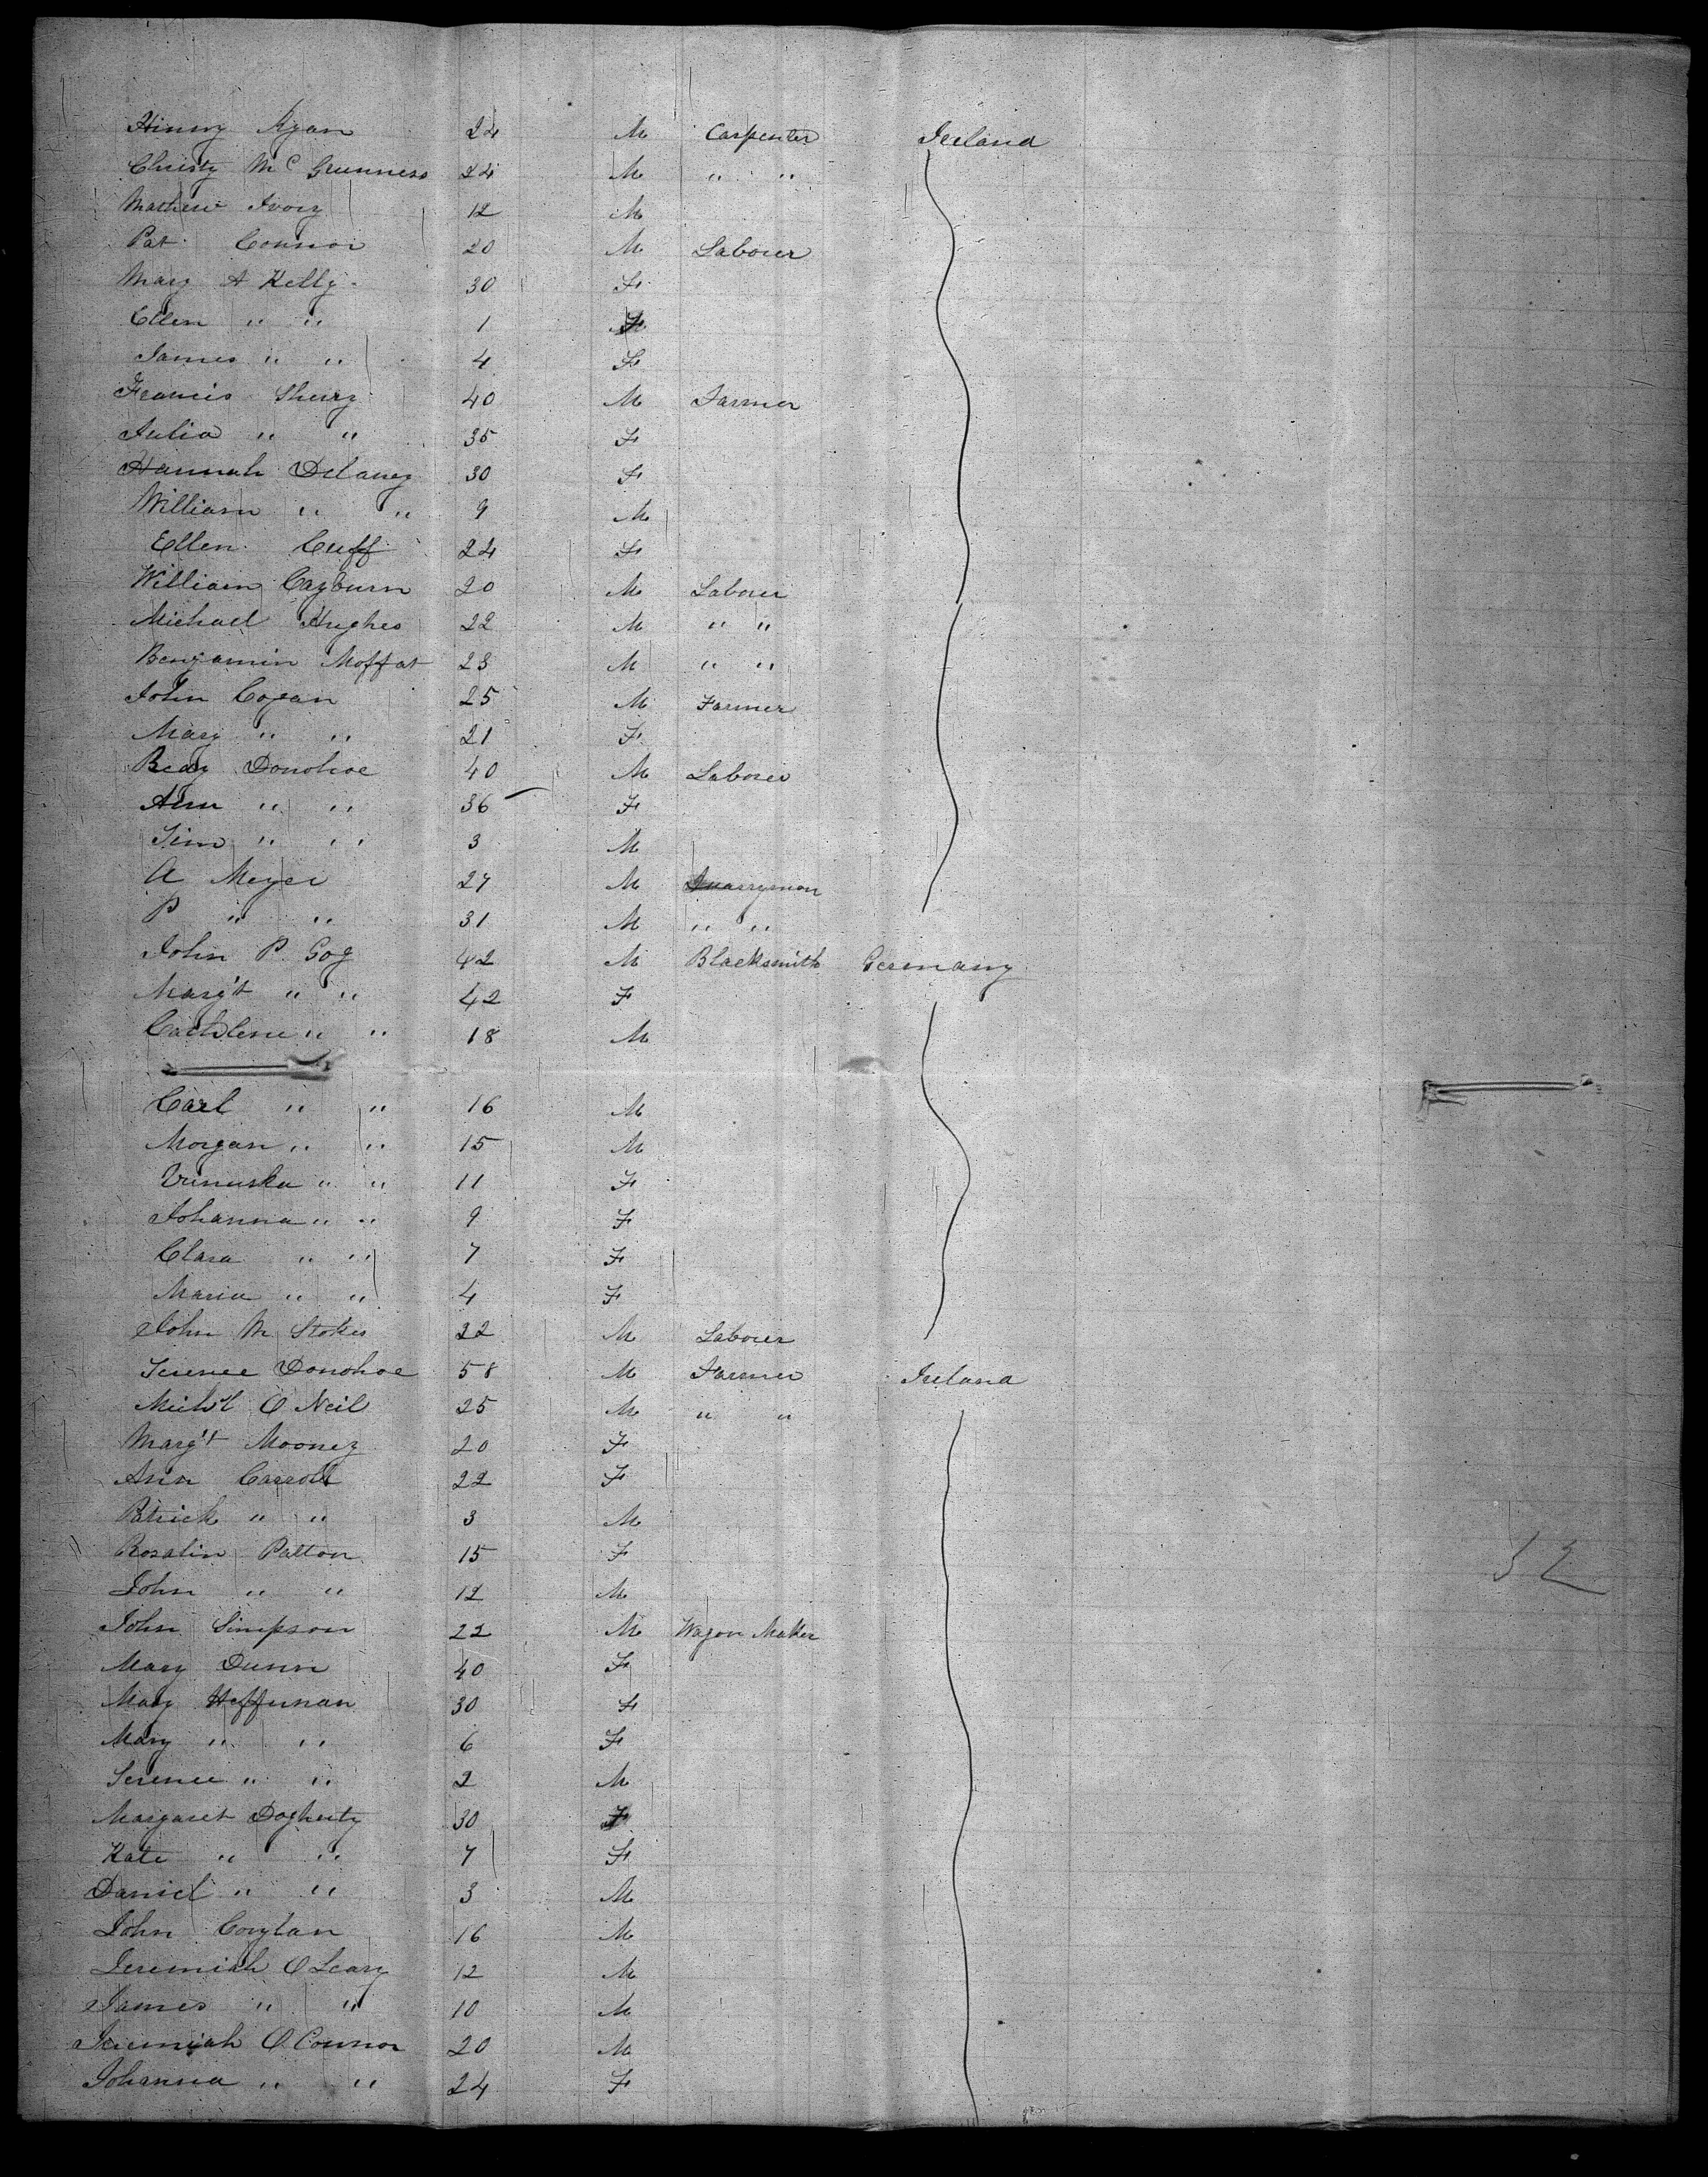 Hinny Ryan 24 M Carpenter Ireland
Christy Mc Guinness 24 M " "
Mathew Ivory 12 M
Pat Connor 20 M Laborer
Mary A Kelly 30 F
Ellen " " 1 F
James " " 4 F
Francis Sherry 40 M Farmer
Julia " " 35 F
Hannah Delaney 30 F
William " " 9 M
Ellen Cuff 24 F
William Cayburn 20 M Laborer
Michael Hughes 22 M " "
Benjamin Moffat 23 M " "
John Cogan 25 M Farmer
Mary " " 21 F
Donohoe 40 M Laborer
Ann " " 36 F
Jim " " 3 M
A Meyer 27 M Quarryman
P " " 31 M " "
John P. Gog 42 M Blacksmith Germany
Marg't " " 42 F
" " 18 M
Carl " " 16 M
Morgan " " 15 M
" " 11 F
Johanna " " 9 F
Clara " " 7 F
Maria " " 4 F
John M Stokes 22 M Laborer
Terence Donohoe 58 M Farmer Ireland
Mich'l O Neil 25 M " "
Marg't Mooney 20 F
Ann Carroll 22 F
Patrick " " 3 M
Rosalin Patton 15 F
John " " 12 M
John Simpson 22 M Wagon Maker
Mary Dunn 40 F
Mary Heffernan 30 F
Mary " " 6 F
Terence " " 2 M
Margaret Dogherty 30 F
Kate " " 7 F
Daniel " " 3 M
John Coughlan 16 M
Jeremiah O Leary 12 M
James " " 10 M
Jeremiah O Connor 20 M
Johanna " " 24 F